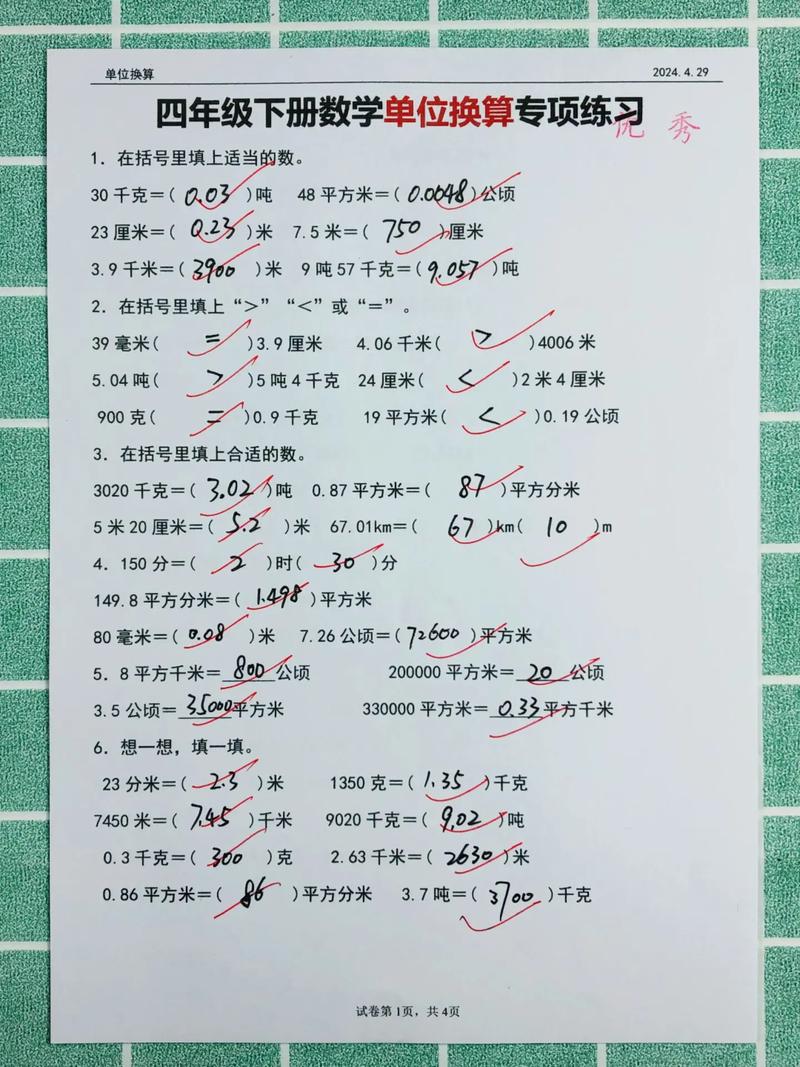 单位换算 2024.4.29
四年级下册数学单位换算专项练习
优秀
1．在括号里填上适当的数。
30千克=( 0.03 )吨 48平方米=( 0.0048 )公顷
23厘米=( 0.23 )米 7.5米=( 750 )厘米
3.9千米=( 3900 )米 9吨57千克=( 9.057 )吨
2．在括号里填上“>”“<”或“=”。
39毫米( = )3.9厘米 4.06千米( > )4006米
5.04吨( > )5吨4千克 24厘米( < )2米4厘米
900克( = )0.9千克 19平方米( < )0.19公顷
3．在括号里填上合适的数。
3020千克=( 3.02 )吨 0.87平方米=( 87 )平方分米
5米20厘米=( 5.2 )米 67.01km=( 67 )km( 10 )m
4．150分=( 2 )时( 30 )分
149.8平方分米=( 1.498 )平方米
80毫米=( 0.08 )米 7.26公顷=( 72600 )平方米
5．8平方千米= 800 公顷 200000平方米= 20 公顷
3.5公顷= 35000 平方米 330000平方米= 0.33 平方千米
6．想一想，填一填。
23分米=( 2.3 )米 1350克=( 1.35 )千克
7450米=( 7.45 )千米 9020千克=( 9.02 )吨
0.3千克=( 300 )克 2.63千米=( 2630 )米
0.86平方米=( 86 )平方分米 3.7吨=( 3700 )千克
试卷第1页，共4页